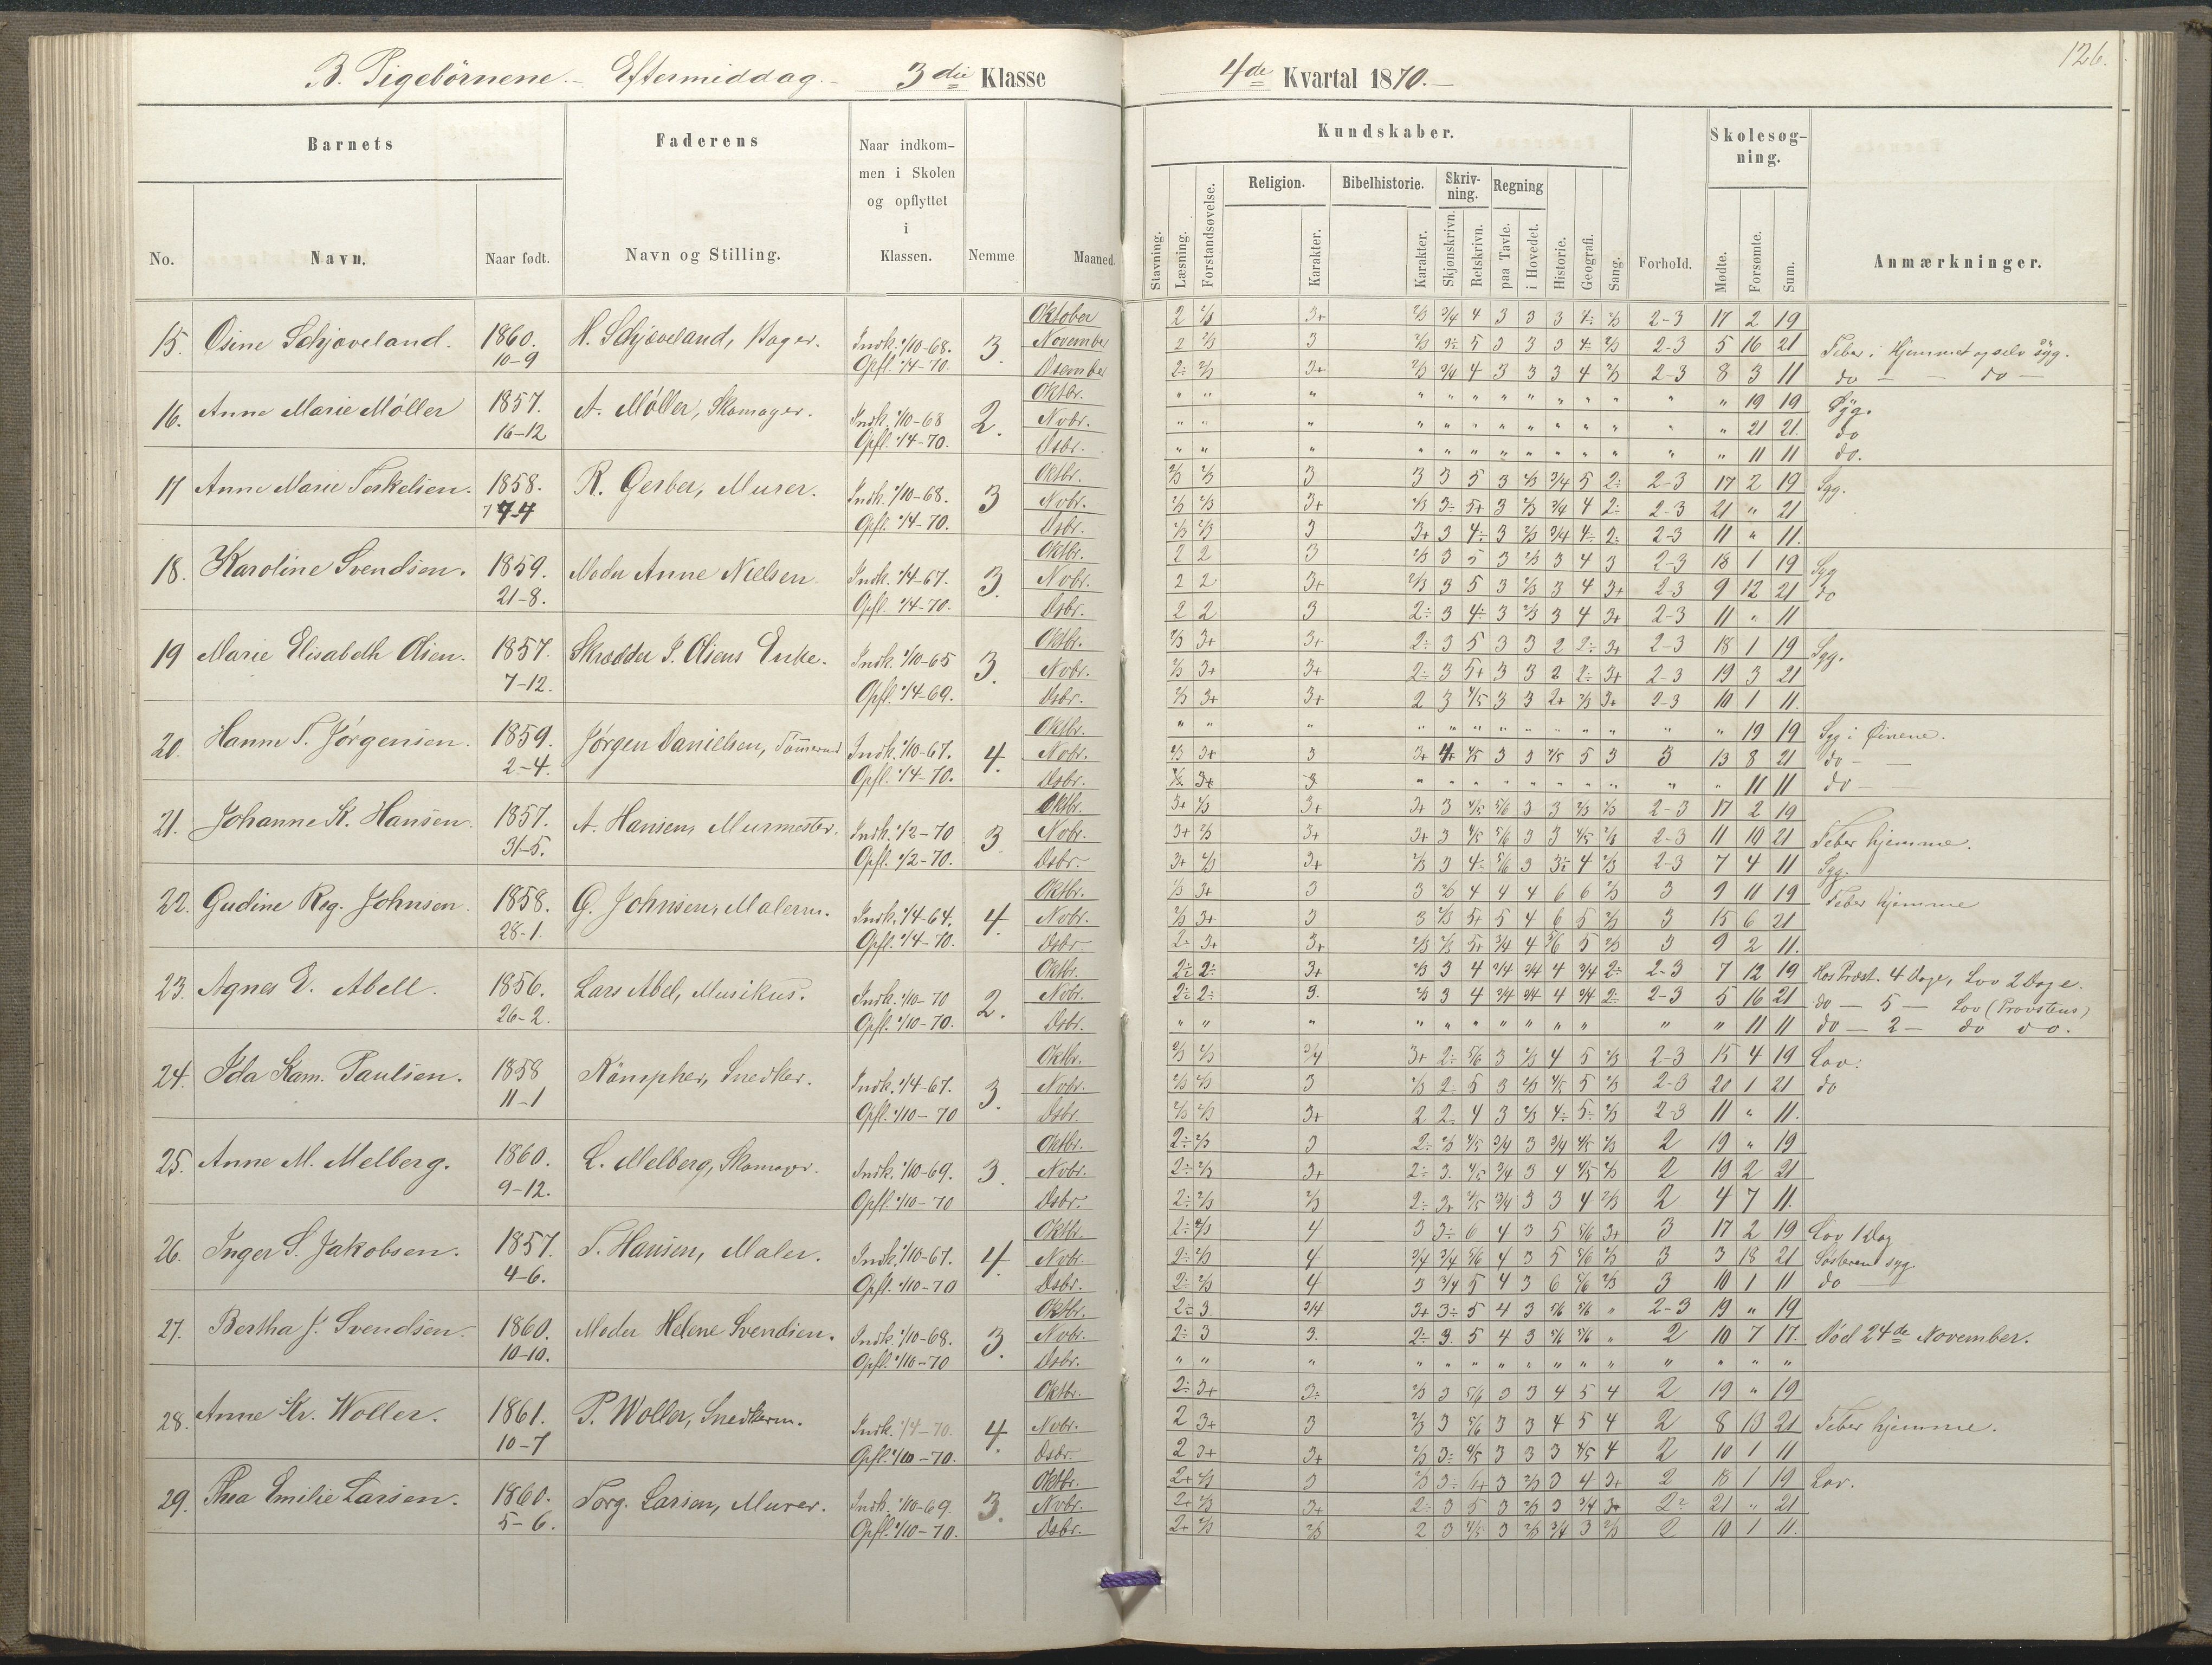 126.
B. Pigebörnene - Eftermiddag - 3die Klasse
4de Kvartal 1870.
Barnets
Faderens
Naar indkommen i Skolen og opflyttet i Klassen.
Kundskaber.
Skolesøgning.
Religion. Bibelhistorie. Skrivning. Regning
No. Navn. Naar født. Navn og Stilling. Nemme Maaned.
Stavning. Læsning. Forstandsøvelse. Karakter. Karakter. Skjønskrivn. Retskrivn. paa Tavle. i Hovedet. Historie. Geografi. Sang. Forhold. Mødte. Forsømte. Sum. Anmærkninger.
15. Osine Schjøveland. 1860. 10-9 H. Schjøveland, Bager. Indk. 1/10-68. Opfl. 1/4-70. 3.
Oktober 2 2/3 3+ 2/3 3/4 4 3 3 3 4÷ 2/3 2-3 17 2 19
November 2 2/3 3 2/3 3÷ 5 3 3 3 4 2/3 2-3 5 16 21 Feber i Hjemmet og selv syg.
Desember 2÷ 2/3 3+ 2/3 3/4 4 3 3 3 4 2/3 2-3 8 3 11 do - - do -
16. Anne Marie Møller 1857. 16-12 A. Møller, Skomager. Indk. 1/10-68 Opfl. 1/4-70. 2.
Oktbr. " " " " " " " " " " " " " 19 19 Syg.
Nvbr. " " " " " " " " " " " " " 21 21. do
Dsbr. " " " " " " " " " " " " " 11 11 do.
17 Anne Marie Terkelsen. 1858. R. Gerber, Murer. Indk. 1/10-68. Opfl. 1/4-70. 3
Oktbr. 2/3 2/3 3 3 3 5 3 2/3 3/4 5 2÷ 2-3 17 2 19 Syg.
Nvbr. 2/3 2/3 3+ 2/3 3÷ 5+ 3 2/3 3/4 4 2÷ 2-3 21 " 21
Dsbr. 2/3 2/3 3 3+ 3 4÷ 3 2/3 3/4 4÷ 2÷ 2-3 11 " 11.
18. Karoline Svendsen. 1859. 21-8. Moder Anne Nielsen Indk. 1/4-67. Opfl. 1/4-70. 3.
Oktbr. 2 2 3 2/3 3 5 3 2/3 3 4 3 2-3 18 1 19 Syg
Nvbr. 2 2 3+ 2/3 3 5 3 2/3 3 4 3+ 2-3 9 12 21 do
Dsbr. 2 2 3 2÷ 3 4÷ 3 2/3 3 4 3+ 2-3 11 " 11
19 Marie Elisabeth Olsen. 1857. 7-12. Skrædder J. Olsens Enke. Indk. 1/10-65 Opfl. 1/4-69. 3.
Oktbr. 2/3 3+ 3+ 2÷ 3 5 3 3 2 2÷ 3+ 2-3 18 1 19 Syg.
Nvbr. 2/3 3+ 3+ 2÷ 3 5+ 3 3 2 2÷ 3+ 2-3 19 3 21
Dsbr. 2/3 3+ 3+ 2 3 4/5 3 3 2+ 2/3 3+ 2-3 10 1 11.
20. Hanne S. Jörgensen. 1859. 2-4. Jörgen Danielsen, Tømmermd Indk. 1/10-67. Opfl. 1/4-70. 4.
Oktbr. " " " " " " " " " " " " " 19 19 Syg i Øinene.
Nvbr. 2/3 3+ 3 3+ 4+ 4/5 3 3 4/5 5 3 3 13 8 21 do -
Dsbr. 3+ 3 " " " " " " " " " " 11 11 do -
21. Johanne K. Hansen. 1857. 31-5. A. Hansen, Murmester. Indk. 1/2-70 Opfl. 1/2-70. 3
Oktbr. 3+ 2/3 3+ 3+ 3 4/5 5/6 3 3 2/3 2/3 2-3 17 2 19
Nvbr. 3+ 2/3 3+ 3+ 3 4/5 5/6 3 3 4/5 2/3 2-3 11 10 21 Feber hjemme.
Dsbr. 3+ 2/3 3+ 2/3 3 4÷ 5/6 3 3÷ 4 2/3 2-3 7 4 11 Syg.
22. Gudine Reg. Johnsen 1858. 28-1. G. Johnsen, Malerm. Indk. 1/4-64. Opfl. 1/4-70. 4.
Oktbr. 2/3 3+ 3 3 2/3 4 4 4 6 6 2/3 3 9 10 19 Feber hjemme
Nvbr. 2/3 3+ 3 3 2/3 5+ 5 4 6 5 2/3 3 15 6 21
Dsbr 2÷ 3+ 3+ 2/3 2/3 5+ 3/4 4 5/6 5 2/3 3 9 2 11.
23. Agnes E. Abell. 1856. 26-2. Lars Abel, Musikus. Indk. 1/10-70 Opfl. 1/10-70. 2.
Oktbr. 2÷ 2÷ 3+ 2/3 3 4 3/4 3/4 4 3/4 2÷ 2-3 7 12 19 Hos Præst. 4 Dage, Lov 2 Dage.
Nvbr. 2÷ 2÷ 3. 2/3 3 4 3/4 3/4 4 3/4 2÷ 2-3 5 16 21 do - 5 - Lov (Provstens)
Dsbr. " " " " " " " " " " " " 11 11 do - 2 - do do.
24. Ida Kam. Paulsen. 1858 11-1 Römpher, Snedker. Indk. 1/4-67. Opfl. 1/10-70 3.
Oktbr. 2/3 2/3 3/4 3+ 2÷ 5/6 3 2/3 4 5 2/3 2-3 15 4 19 Lov.
Nvbr. 2/3 2/3 3 2/3 2 5 3 2/3 4/5 5 2/3 2-3 20 1 21 do
Dsbr. 2/3 2/3 3+ 2 2÷ 4 3 2/3 4÷ 5÷ 2/3 2-3 11 " 11.
25. Anne M. Melberg. 1860. 9-12. L. Melberg, Skomager. Indk. 1/10-69. Opfl. 1/10-70 3
Oktbr. 2÷ 2/3 3 2÷ 2/3 4/5 3/4 3 3/4 4/5 2/3 2 19 " 19
Nvbr. 2÷ 2/3 3+ 2÷ 3. 4/5 3/4 3 4 4/5 2/3 2 19 2 21
Dsbr. 2÷ 2/3 2/3 2÷ 3+ 4/5 3/4 3 3 4 2/3 2 4 7 11.
26. Inger S. Jakobsen. 1857. 4-6. S. Hansen, Maler. Indk. 1/10-67. Opfl. 1/10-70 4.
Oktbr. 2÷ 2/3 4 3 3÷ 6 4 3 5 5/6 3+ 3 17 2 19 Lov 1 Dag
Nvbr. 2÷ 2/3 4 3/4 3/4 5/6 4 3 5 5/6 2/3 3 3 18 21 Søsteren syg.
Dsbr. 2÷ 2/3 4 3 3/4 5 4 3 6 5/6 2/3 3 10 1 11 do
27. Bertha J. Svendsen. 1860. 10-10. Moder Helene Svendsen. Indk. 1/10-68. Opfl. 1/10-70 3.
Oktbr. 2÷ 3 3/4 3+ 3÷ 5 4 3 5/6 5/6 " 2-3 19 " 19
Nvbr. 2÷ 3 3. 2÷ 3. 5 4 3 5/6 5/6 " 2 10 7 17. Død 24de November.
Dsbr. " " " " " " " " " " " " " " "
28. Anne Kr. Woller. 1861. 10-7 P. Woller, Snedkerm. Indk. 1/4-70. Opfl. 1/10-70. 4.
Oktbr. 2÷ 3+ 3÷ 2/3 3 5/6 3 3 4 5 4 2 19 " 19
Nvbr. 2 3+ 3 2/3 3 5/6 3 3 4 5 4 2 8 13 21 Feber hjemme.
Dsbr. 2 3+ 3+ 2/3 3÷ 4/5 3 3 3 4/5 4 2 10 1 11
29. Thea Emilie Larsen. 1860. 5-6. Torg. Larsen, Murer. Indk. 1/10-69. Opfl. 1/10-70. 3.
Oktbr. 2+ 2/3 3 2/3 3÷ 4+ 3 2/3 3 4 3+ 2 18 1 19 Lov.
Nvbr. 2+ 2/3 3+ 2÷ 3 5 3 2/3 3 3/4 3+ 2? 21 " 21
Dsbr. 2+ 2/3 2/3 2 3 4/5 3 2/3 3/4 3 2/3 2 10 1 11.